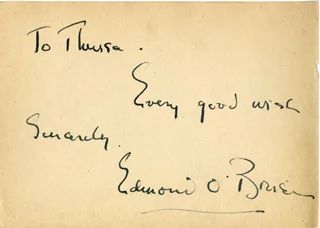 To Theresa.
Every good wish
Sincerely.
Edmond O'Brien